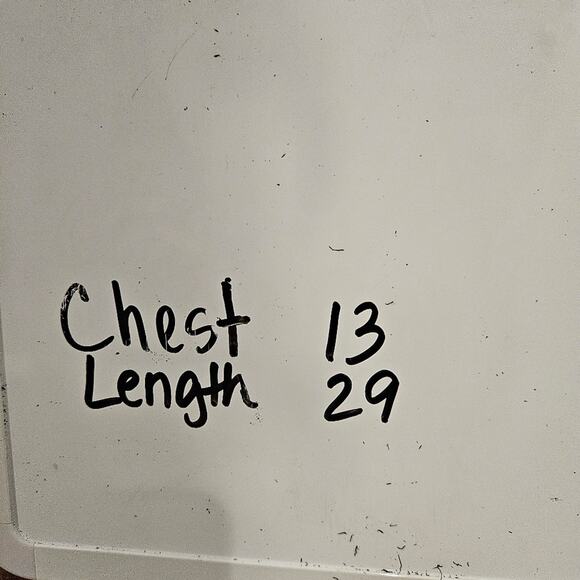 Chest 13
Length 29